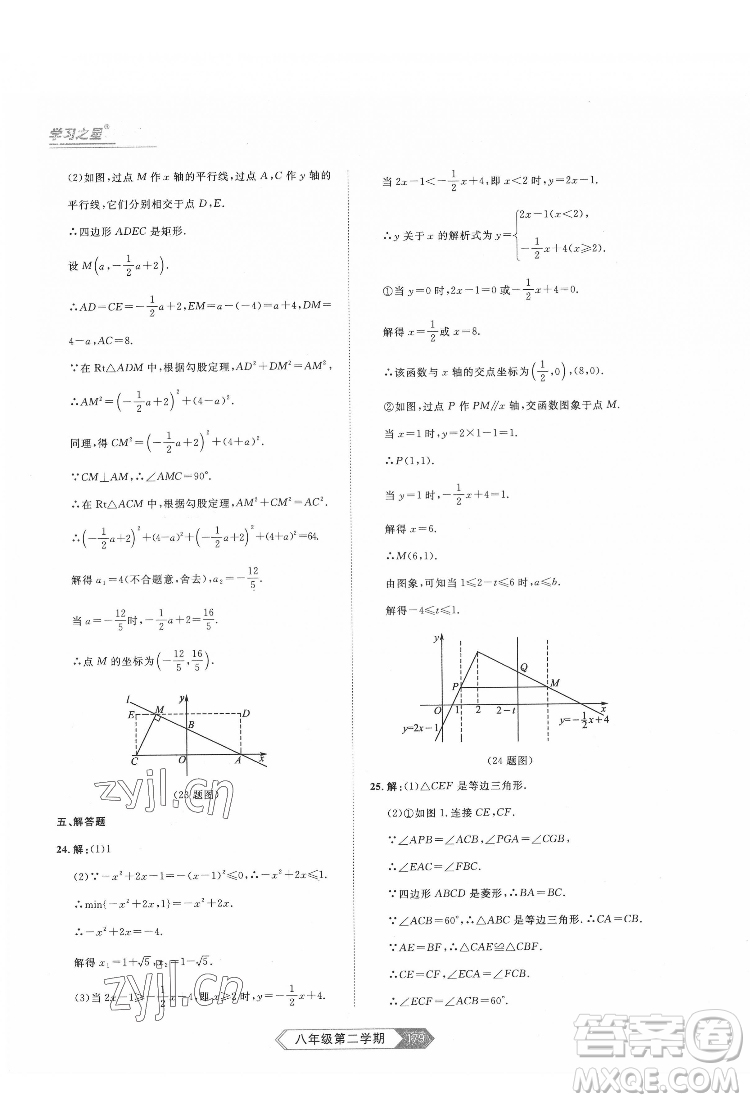 学习之星®
(2)如图,过点 M 作 x 轴的平行线,过点 A,C 作 y 轴的
平行线,它们分别相交于点 D,E.
∴四边形 ADEC 是矩形.
设 M(a,-1/2a+2).
∴AD=CE=-1/2a+2,EM=a-(-4)=a+4,DM=
4-a,AC=8.
∵在 Rt△ADM 中,根据勾股定理,AD²+DM²=AM²,
∴AM²=(-1/2a+2)²+(4-a)².
同理,得 CM²=(-1/2a+2)²+(4+a)².
∵CM⊥AM,∴∠AMC=90°.
∴在 Rt△ACM 中,根据勾股定理,CM²+AM²=AC².
∴(-1/2a+2)²+(4-a)²+(-1/2a+2)²+(4+a)²=64.
解得 a₁=4(不合题意,舍去),a₂=-12/5.
当 a=-12/5时,-1/2a+2=16/5.
∴点 M 的坐标为(-12/5,16/5).
l
E
M
y
D
B
C
O
A
x
(23 题图)
五、解答题
24. 解:(1)1
(2)∵-x²+2x-1=-(x-1)²≤0,∴-x²+2x≤1.
∴min{-x²+2x,1}=-x²+2x.
∴-x²+2x=-4.
解得 x₁=1+√5,x₂=1-√5.
(3)当 2x-1≥-1/2x+4,即 x≥2 时,y=-1/2x+4.
当 2x-1<-1/2x+4,即 x<2 时,y=2x-1.
∴y 关于 x 的解析式为 y={2x-1(x<2)
-1/2x+4(x≥2).
①当 y=0 时,y=2x-1=0 或 y=-1/2x+4=0.
解得 x=1/2或 x=8.
∴该函数与 x 轴的交点坐标为(1/2,0),(8,0).
②如图,过点 P 作 PM∥x 轴,交函数图象于点 M.
当 x=1 时,y=2×1-1=1.
∴P(1,1).
当 y=1 时,-1/2x+4=1.
解得 x=6.
∴M(6,1).
由图象,可知当 1≤2-t≤6 时,a≤b.
解得-4≤t≤1.
y
Q
P
M
O
1
2
2-t
x
y=2x-1
y=-1/2x+4
(24 题图)
25. 解:(1)△CEF 是等边三角形.
(2)①如图 1,连接 CE,CF.
∵∠APB=∠ACB=60°,∠PGA=∠BGC,
∴∠EAC=∠FBC.
∵四边形 ABCD 是菱形,∴AB=BC.
∵∠ACB=60°,∴△ABC 是等边三角形.
∵AE=BF,∴△CAE≌△CBF.
∴CE=CF,∠ACE=∠BCF.
∴∠ECF=∠ACB=60°.
八年级第二学期
179
zyjl.cn
zyjl.cn
答案卷
MXQE.COM